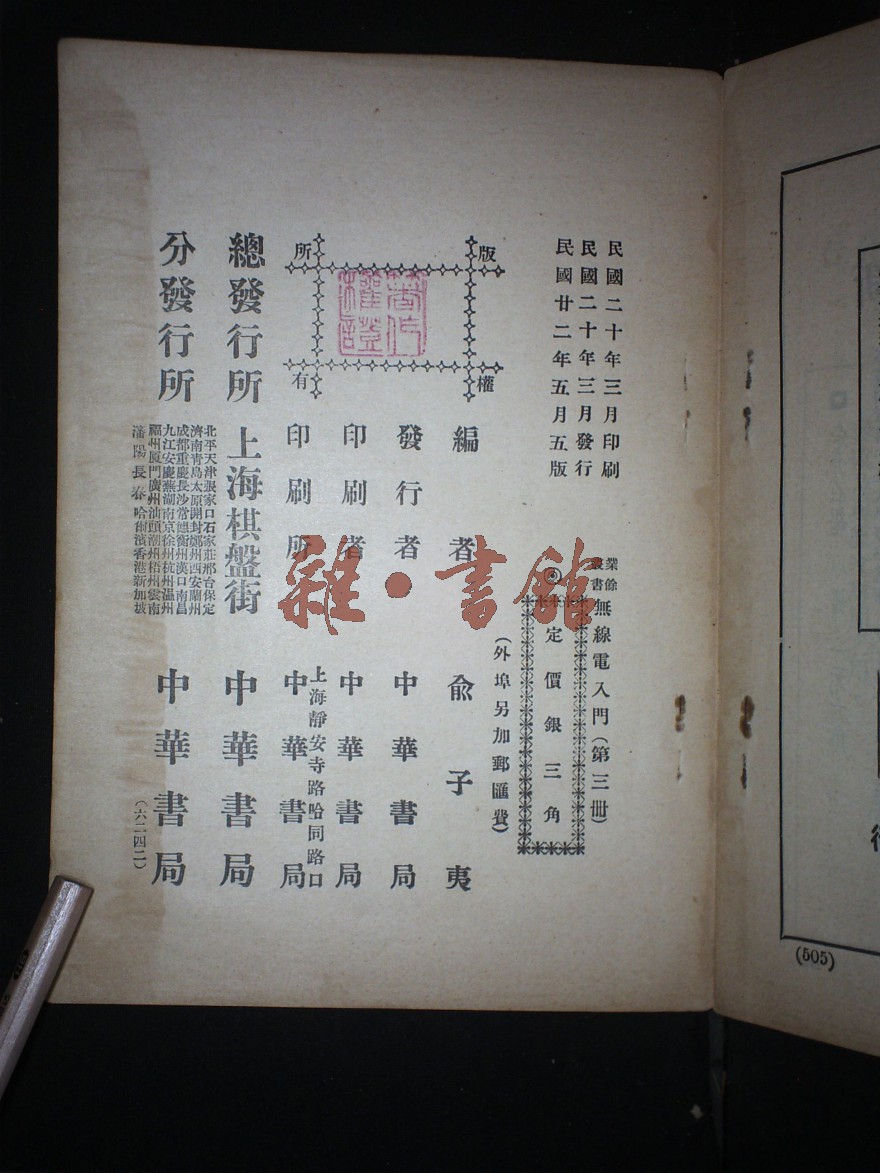 民國二十年三月印刷
民國二十年三月發行
民國廿二年五月五版
業餘叢書
無線電入門(第三册)
定價銀三角
(外埠另加郵匯費)
版權所有
著作權證
編者 俞子夷
發行者 中華書局
印刷者 中華書局
上海靜安寺路哈同路口
印刷所 中華書局
總發行所 上海棋盤街 中華書局
分發行所
北平天津張家口石家莊邢台保定
濟南青島太原開封鄭州西安蘭州
成都重慶長沙常德衡州漢口南昌
九江安慶蕪湖南京徐州杭州溫州
福州廈門廣州汕頭潮州梧州雲南
瀋陽長春哈爾濱香港新加坡
中華書局
(六二四二)
雜·書館
(505)